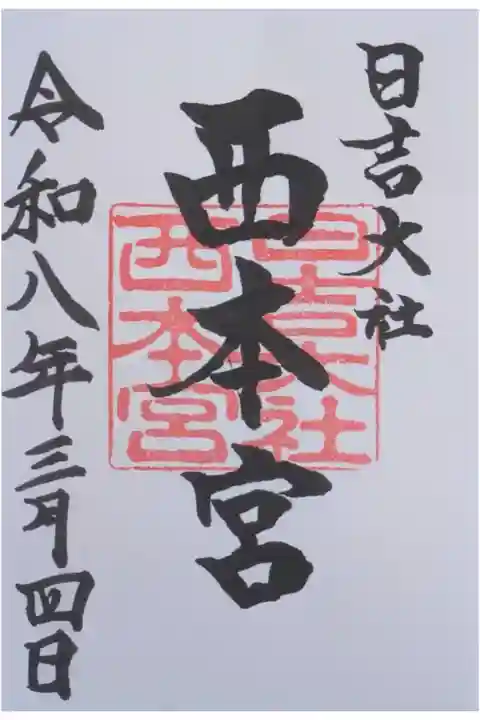 日吉大社
西本宮
令和八年三月四日
日吉大社
西本宮